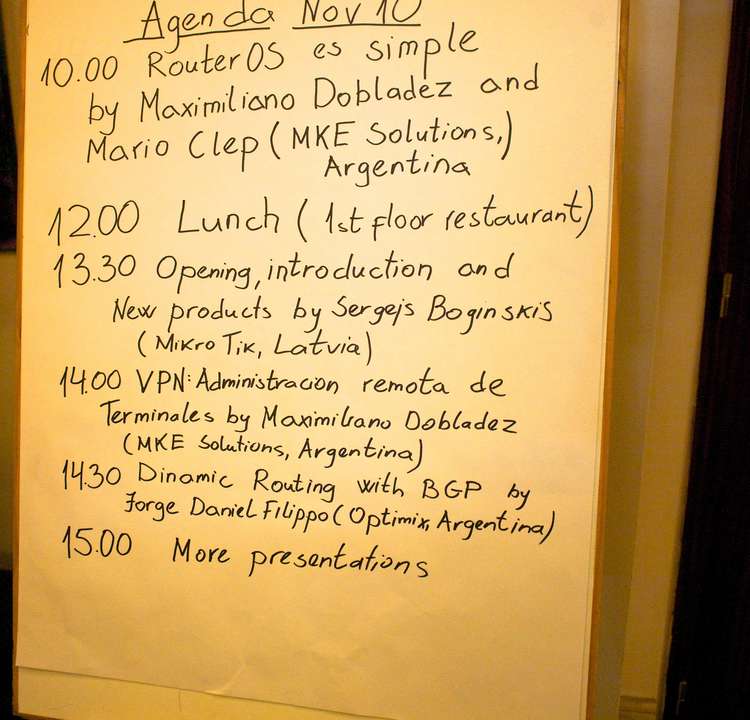 Agenda Nov 10
10.00 RouterOS es simple
by Maximiliano Dobladez and
Mario Clep (MKE Solutions,)
Argentina
12.00 Lunch (1st floor restaurant)
13.30 Opening, introduction and
New products by Sergejs Boginskis
(MikroTik, Latvia)
14.00 VPN: Administracion remota de
Terminales by Maximiliano Dobladez
(MKE Solutions, Argentina)
14.30 Dinamic Routing with BGP by
Jorge Daniel Filippo (Optimix, Argentina)
15.00 More presentations